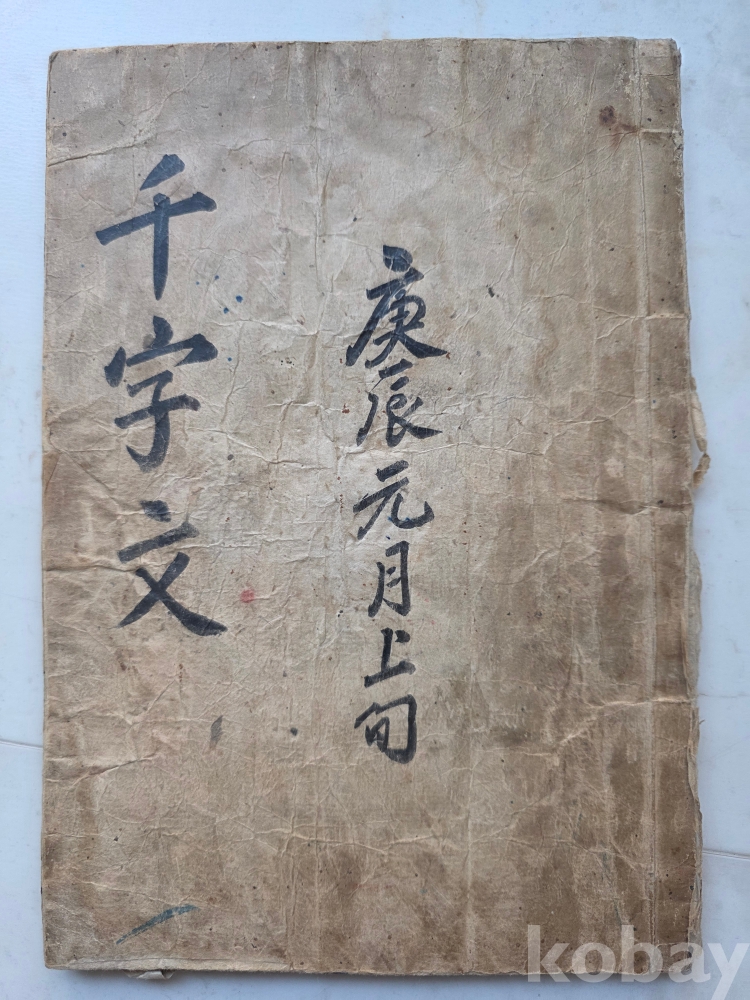 庚辰元月上旬
千字文
kobay